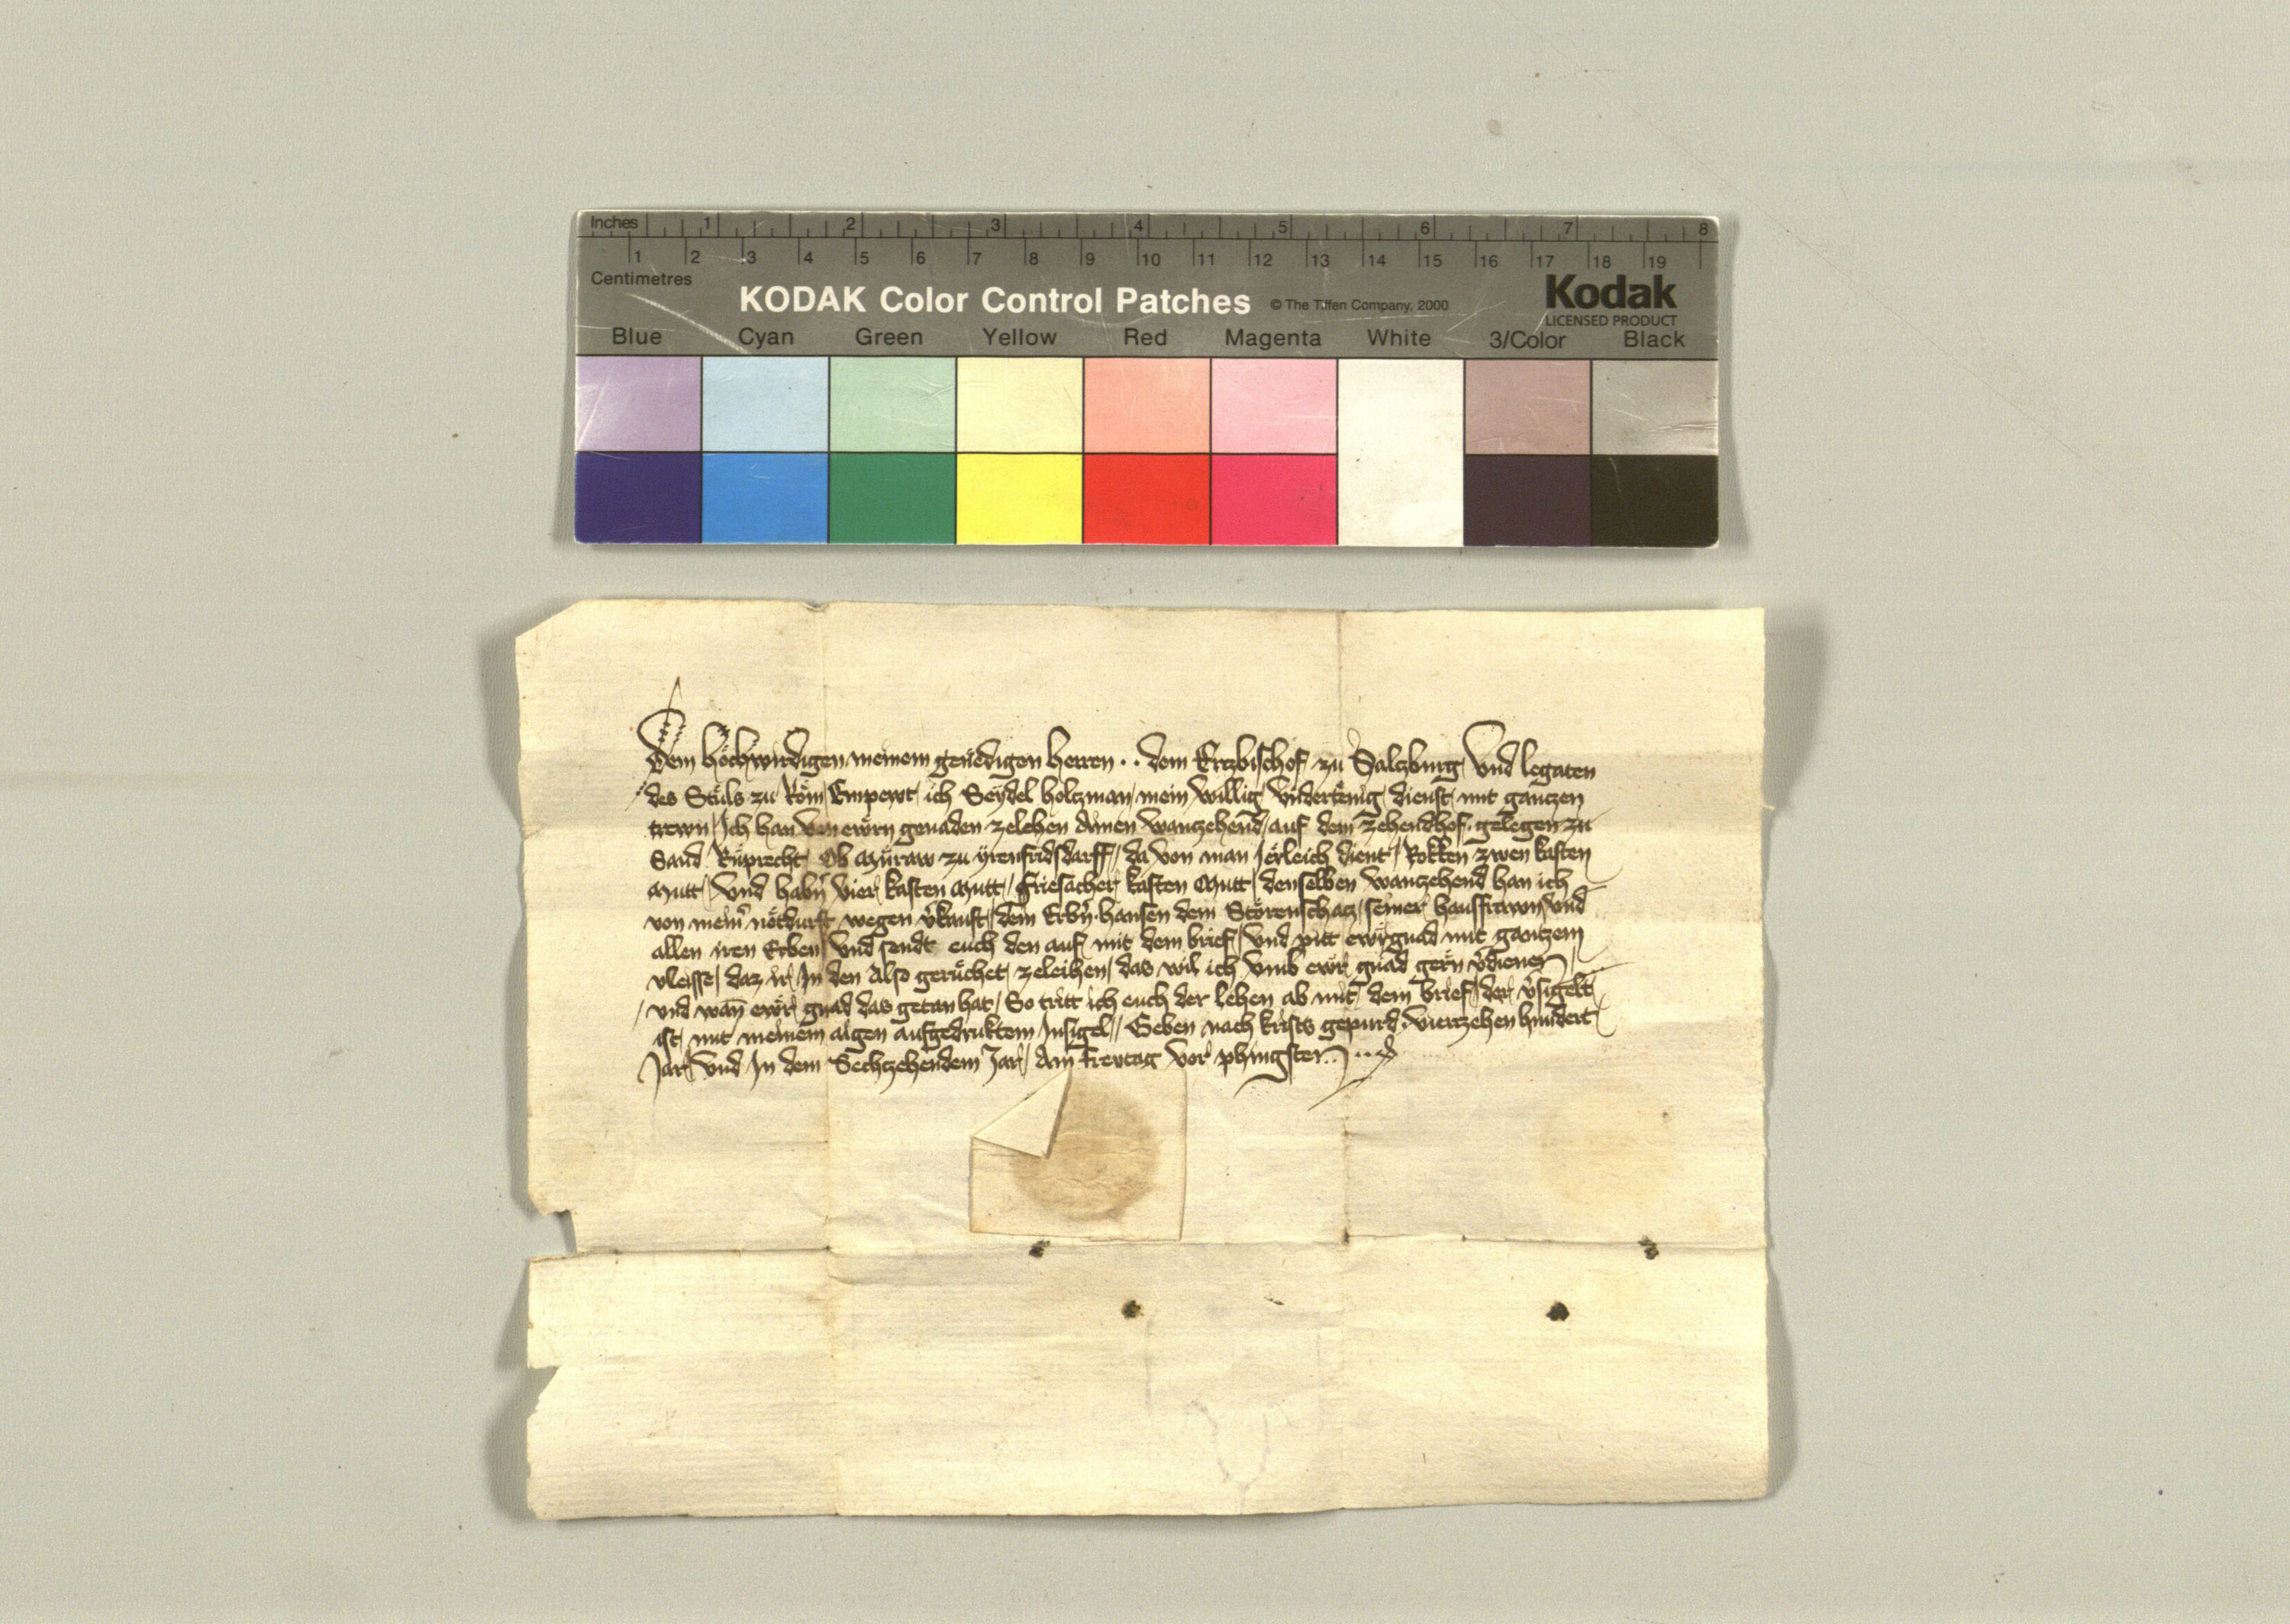 Inches 1 2 3 4 5 6 7 8
1 2 3 4 5 6 7 8 9 10 11 12 13 14 15 16 17 18 19
Centimetres
KODAK Color Control Patches © The Tiffen Company, 2000 Kodak
LICENSED PRODUCT
Blue Cyan Green Yellow Red Magenta White 3/Color Black
Dem hochwirdigen meinem genedigen herren .. dem Ertzbischof zu Salzburg Vnd legaten
des Stuls zu Rom Empewt ich Seydel holtzman mein willig vndertenig dienst mit gantzen
trewn Ich han von ewrn genaden zelehen Ainen wanzehend auf dem zehendhof gelegen zu
Sand Ruprecht Ob Muraw zu yrenfridsdarff da von man Jerleich dient Rokken zwen kasten
Mutt Vnd habn vier kasten Mutt friesacher kasten Mutt denselben wanzehend han ich
von meinr notdurft wegen vkauft dem Erbn hansen dem Storenschatz seiner hausfrawn Vnd
allen iren Erben Vnd sendt euch den auf mit dem brief Vnd pitt ewr gnad mit gantzem
vleisse daz ir In den Also geruchet zeleihen das wil ich Vmb ewr gnad gern vdienen
vnd wan ewr gnad das getan hat So tritt ich euch der lehen ab mit dem brief der vsigelt
ist mit meinem aigen aufgedruktem Insigel Geben nach krists gepurd vierzehen hundert
Jar Vnd In dem Sechzehendem Jar Am Freytag vor phingsten